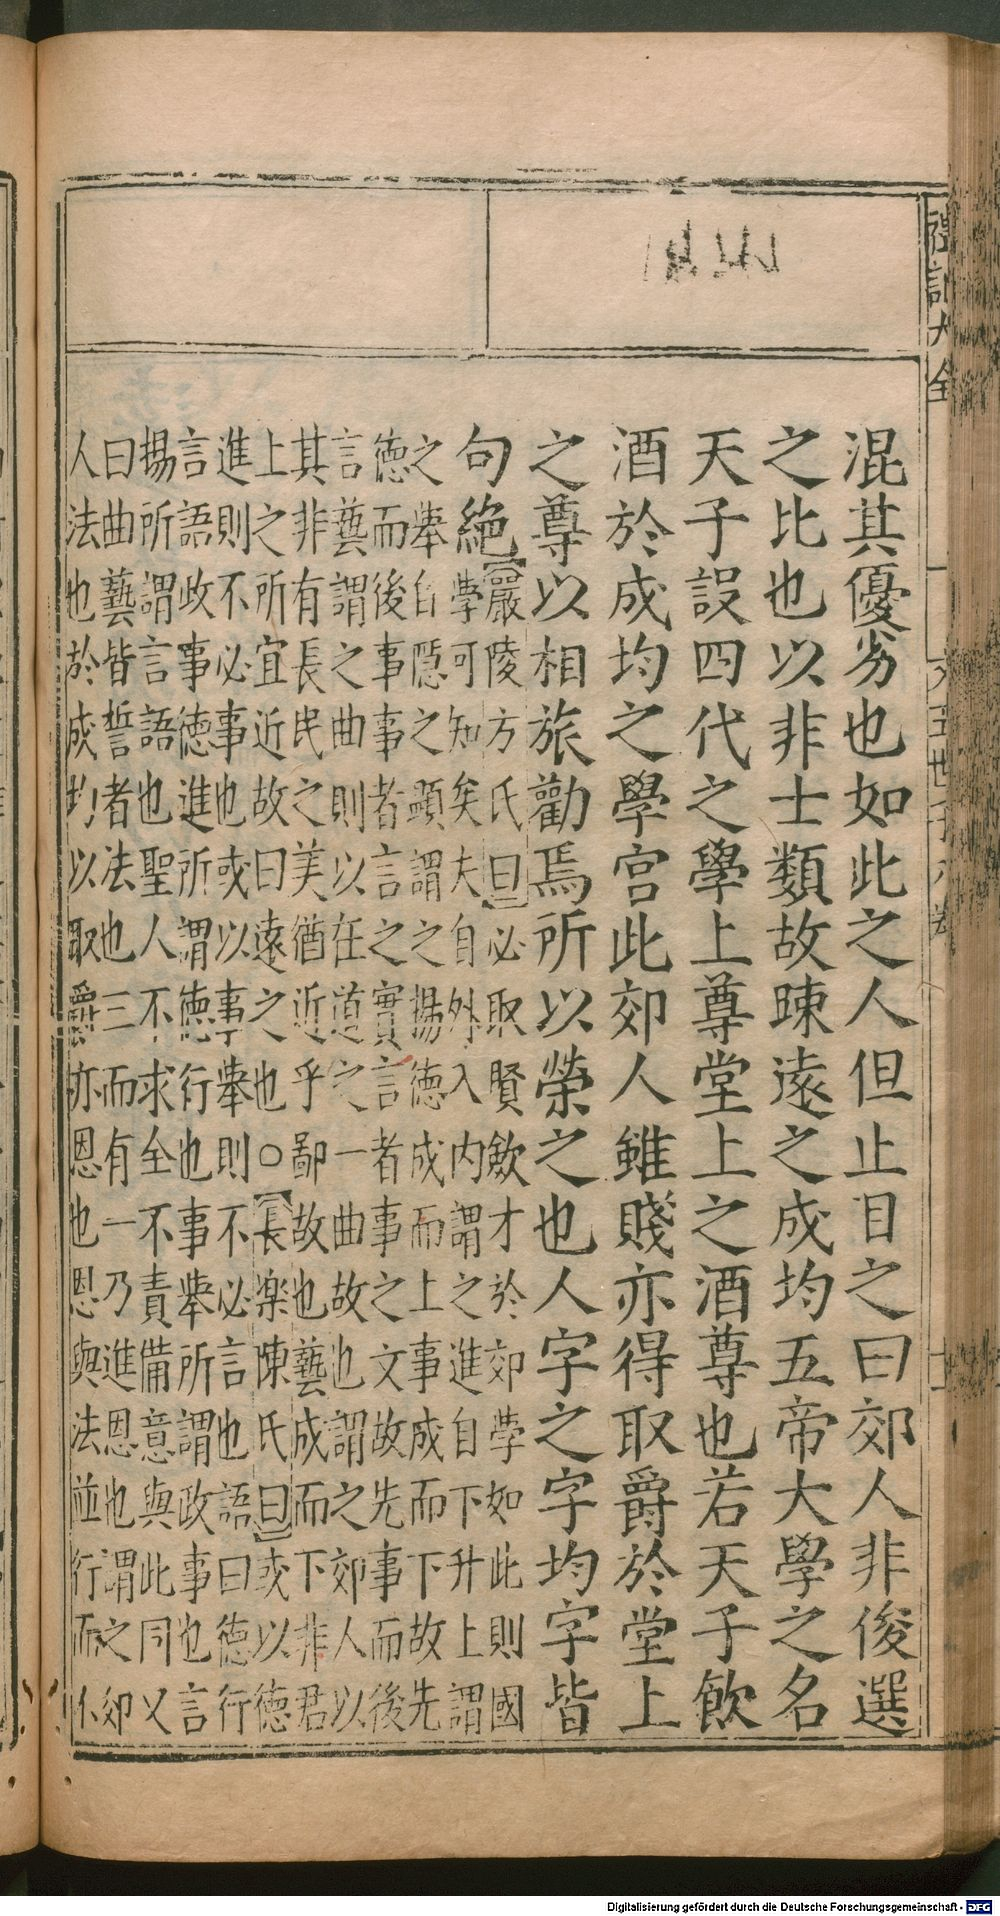 禮記大全
混其優劣也如此之人但止目之曰郊人非俊選
之比也以非士類故疎遠之成均五帝大學之名
天子設四代之學上尊堂上之酒尊也若天子飲
酒於成均之學宮此郊人雖賤亦得取爵於堂上
之尊以相旅勸焉所以榮之也人字之字均字皆
句絶
【嚴陵方氏曰】必取賢斂才於郊學如此則國
學可知矣夫自外入內謂之進自下升上謂
之舉自隱之顯謂之揚德成而上事成而下故先
德而後事事者言之實言者事之文故先事而後
言藝謂之曲則以在道之一曲故也謂之郊人以
其非有長民之美猶近乎鄙故也藝成而下非君
上之所宜近故曰遠之也○【長樂陳氏曰】或以德
進則不必事也或以事舉則不必言也語曰德行
言語政事德進所謂德行也事舉所謂政事也言
揚所謂言語也聖人不求全不責備意與此同又
曰曲藝皆誓者法也三而有一乃進恩也謂之郊
人法也於成均以取爵亦恩也恩與法並行而不
Digitalisierung gefördert durch die Deutsche Forschungsgemeinschaft - DFG